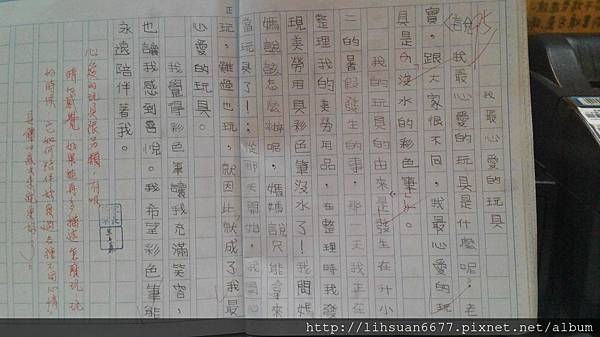 我最心愛的玩具
說我最心愛的玩具是什麼呢,老
實,跟大家很不同,我最心愛的玩
具是「沒水的彩色筆」。
我的玩具的由來是發生在升小
二的暑假發生的事,那一天我正在
整理我的美勞用品,在整理時我發
現美勞用具彩色筆沒水了!我問媽
媽說該怎麼辦呢,媽媽說只能拿來
當玩具了!從那天開始,我開心
正
玩,難過也玩,就因此就成了我最
心愛的玩具。
我覺得彩色筆讓我充滿笑容,
也讓我感到喜悅。我希望彩色筆能
永遠陪伴著我。
心愛的玩具很另類,有
http://lihsuan6677.pixnet.net/album